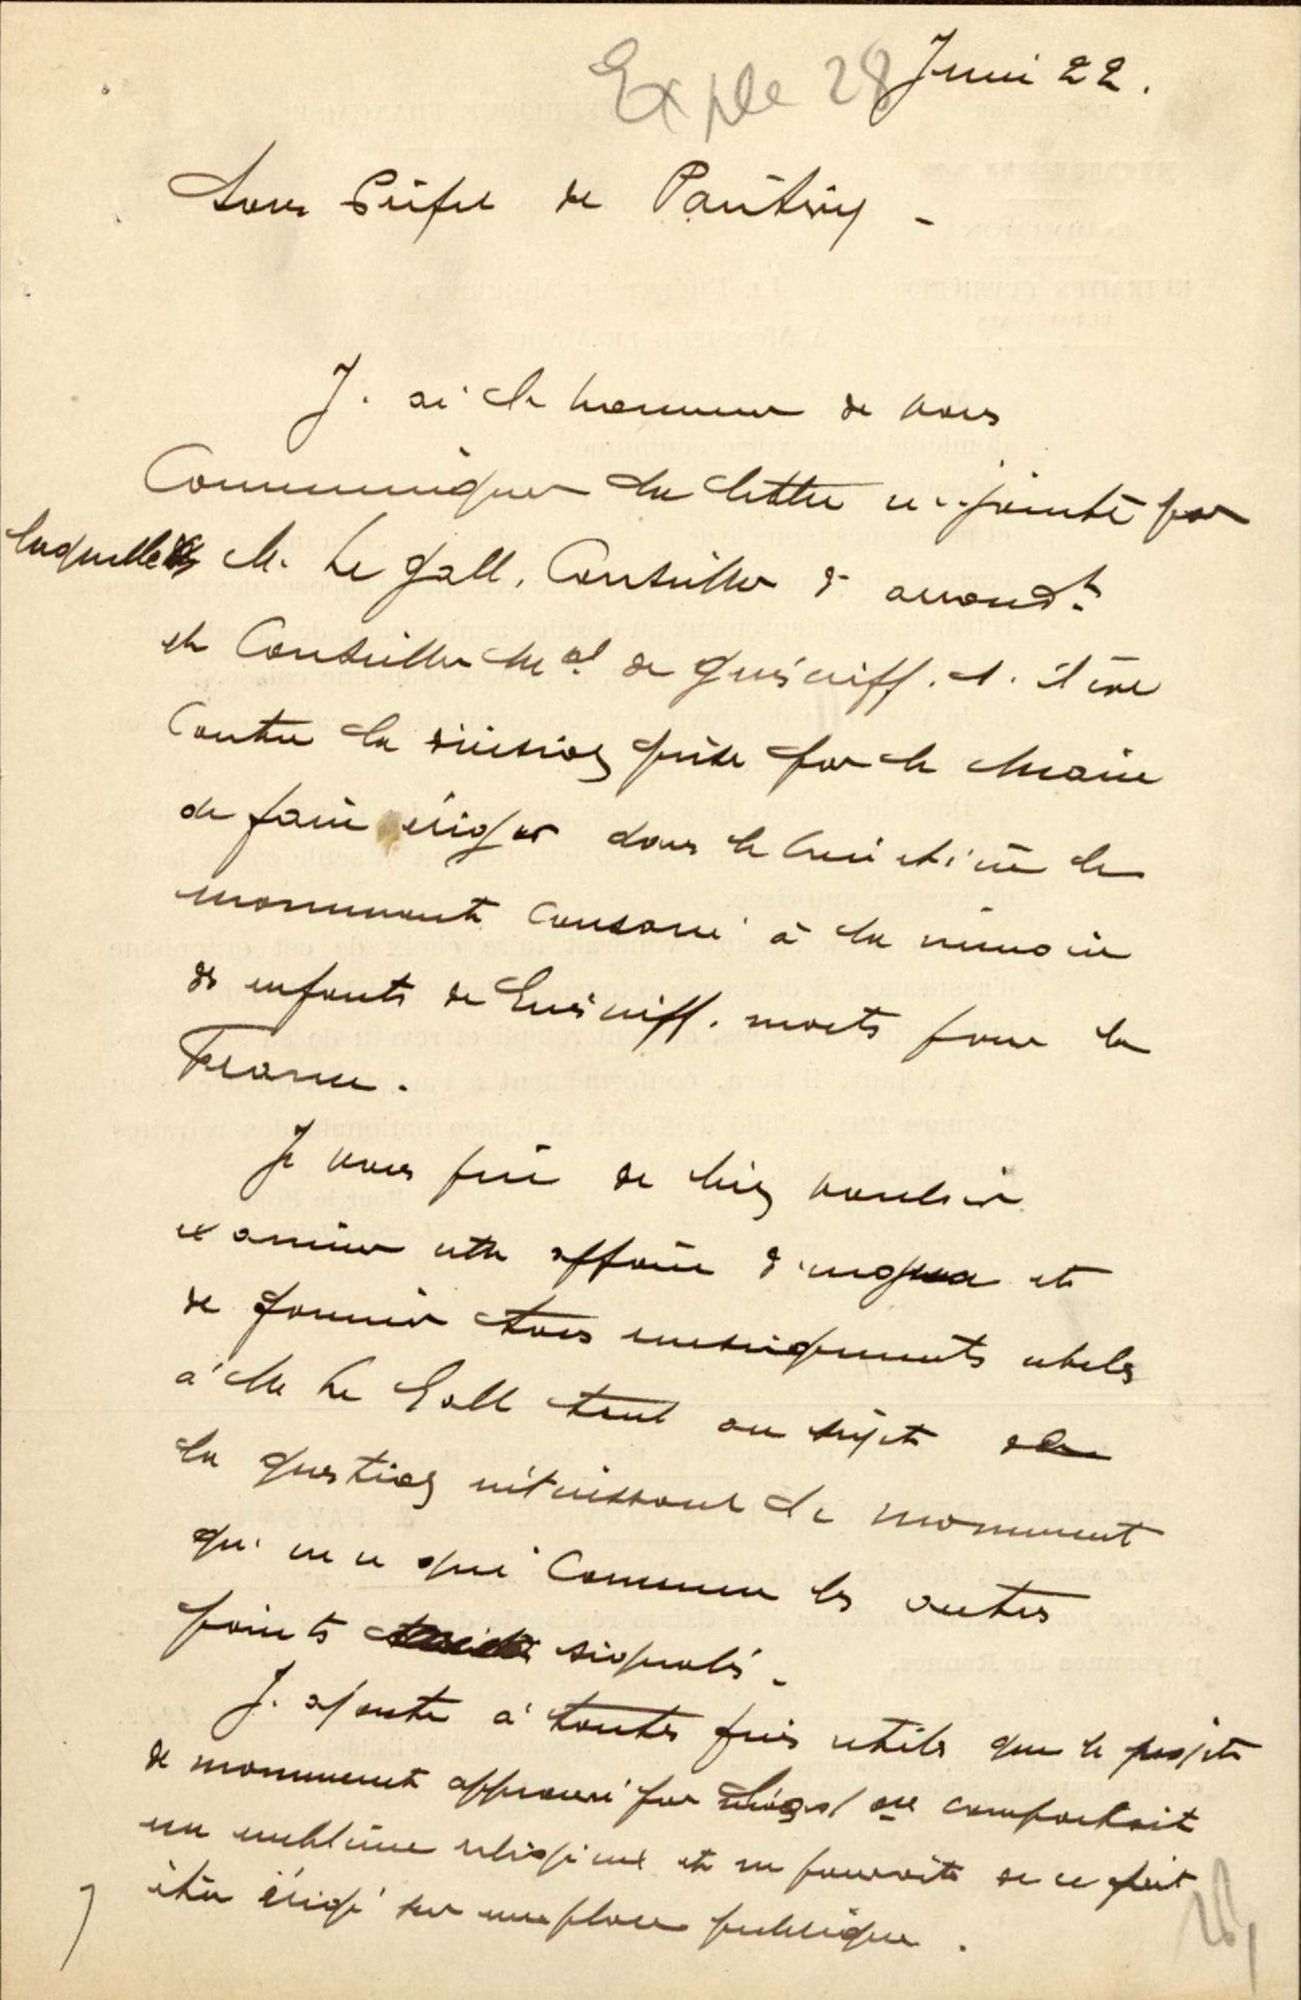 Exple 28 Juin 22.
Sous Préfet de Pontivy -
J'ai l'honneur de vous
Communiquer la lettre ci-jointe par
laquelle M. Le Gall, Conseiller d'arrondt
et Conseiller Mal de Guéniff. s'élève
contre la décision prise par le Maire
de faire ériger dans le Cimetière le
monument consacré à la mémoire
des enfants de Guéniff. morts pour la
France.
Je vous prie de bien vouloir
examiner cette affaire d'urgence et
de fournir tous renseignements utiles
à M. Le Gall tant au sujet de
la question intéressant le monument
qu'en ce qui concerne les autres
points signalés.
J'ajoute à toutes fins utiles que le projet
de monument approuvé par comportait
un emblème religieux et ne pourrait de ce fait
être érigé sur une place publique.